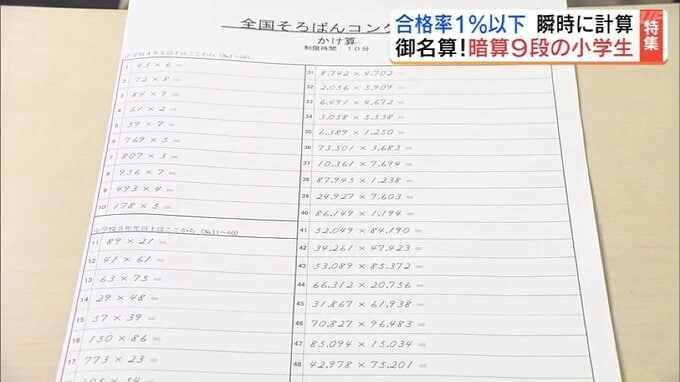 合格率1%以下 瞬時に計算
御名算!暗算9段の小学生
特集
全国そろばんコンク
かけ算
制限時間 10分
小学校4年生以上はここから (№1~60)
1 43 × 6 =
2 72 × 8 =
3 84 × 9 =
4 61 × 2 =
5 39 × 7 =
6 769 × 5 =
7 807 × 3 =
8 956 × 7 =
9 493 × 4 =
10 178 × 5 =
小学校5年生以上はここから (№11~60)
11 89 × 21 =
12 41 × 61 =
13 63 × 75 =
14 29 × 48 =
15 57 × 39 =
16 150 × 86 =
17 773 × 23 =
31 8,742 × 4,702 =
32 2,056 × 5,909 =
33 6,491 × 4,672 =
34 3,058 × 5,538 =
35 6,389 × 1,250 =
36 73,501 × 3,683 =
37 10,361 × 7,694 =
38 87,945 × 1,238 =
39 24,927 × 7,603 =
40 86,149 × 1,194 =
41 52,049 × 84,190 =
42 34,261 × 47,423 =
43 53,089 × 85,372 =
44 65,756 × 20,856 =
45 31,867 × 61,938 =
46 70,827 × 96,483 =
47 85,094 × 15,034 =
48 42,978 × 75,201 =